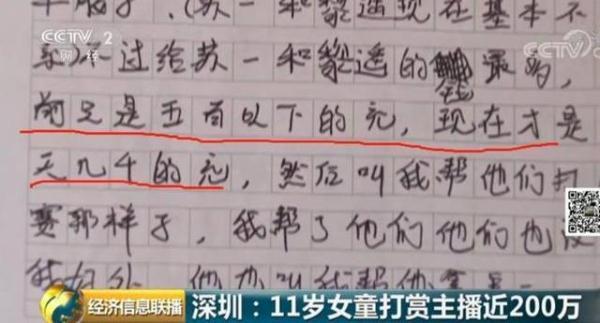 CCTV 2
财经
CCTV
(苏一和黎遥现在基本不
过给苏一和黎遥的钱最多,
前是五百以下的充,现在才是
天几千的充,然后叫我帮他们打
赛那样子,我帮了他们他们也没
他也叫我帮他
经济信息联播
深圳:11岁女童打赏主播近200万